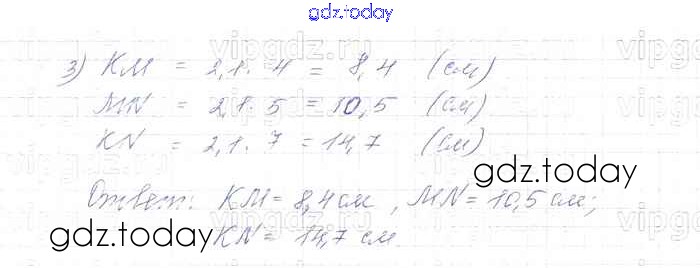 gdz.today
vipgdz.ru
3) KM = 2,1 · 4 = 8,4 (см)
MN = 2,1 · 5 = 10,5 (см)
KN = 2,1 · 7 = 14,7 (см)
gdz.today
Ответ: KM = 8,4 см, MN = 10,5 см;
gdz.today
KN = 14,7 см.